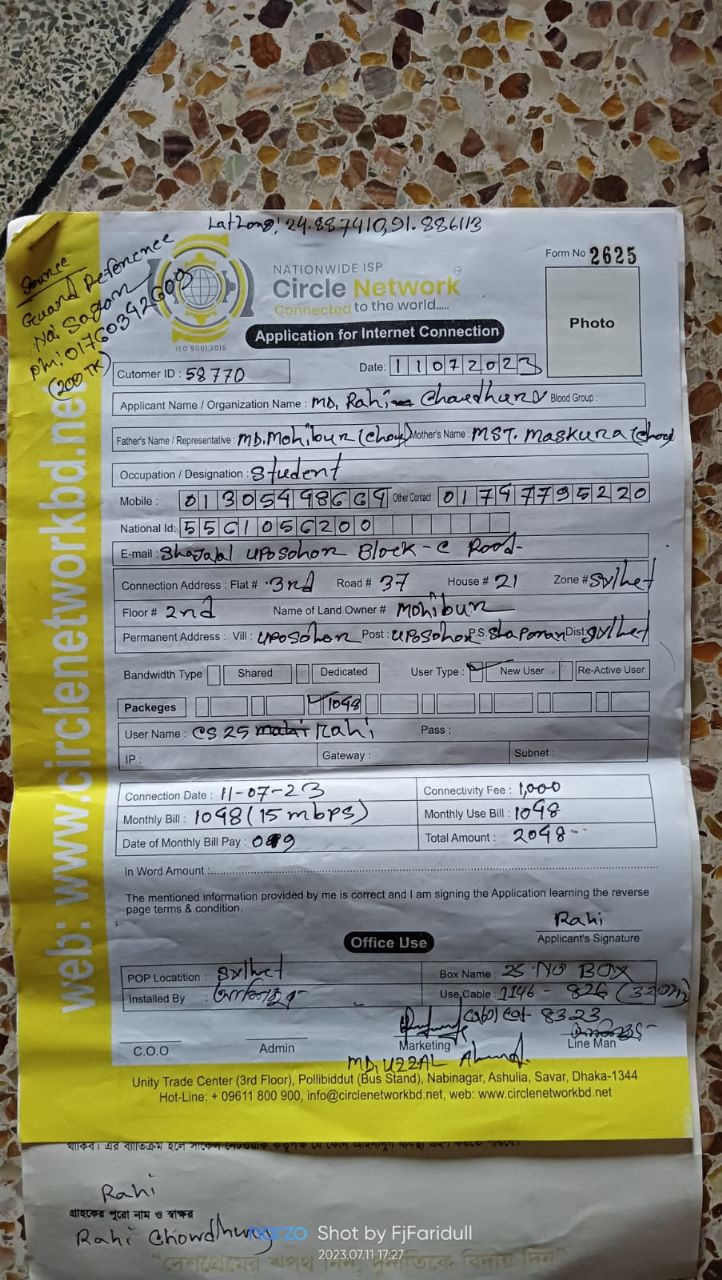 Lat Long: 24.887410,91.886113
Source
Guard Reference
ph: 01760342609
(200 TK)
NATIONWIDE ISP
Circle Network
Connected to the world.....
ISO 9001:2015
Form No 2625
Photo
Application for Internet Connection
Cutomer ID : 58770 Date: 11072023
Applicant Name / Organization Name : MD. Rahi Chowdhury Blood Group :
Father's Name / Representative : MD. Mohibur (Chow) Mother's Name : MST. Maskura (Chow)
Occupation / Designation : Student
Mobile : Other Contact : 01797795220
National Id:
E-mail : Shajalal Uposohor Block - C Road-
Connection Address : Flat # 3rd Road # 37 House # 21 Zone # Sylhet
Floor # 2nd Name of Land Owner # Mohibur
Permanent Address : Vill : Uposohor Post : Uposohor P.S. Shaporan Dist: Sylhet
Bandwidth Type Shared Dedicated User Type : New User Re-Active User
Packeges 1098
User Name : CS 25 Rahi Pass :
IP : Gateway : Subnet :
Connection Date : 11-07-23 Connectivity Fee : 1,000
Monthly Bill : 1098 (15 mbps) Monthly Use Bill : 1098
Date of Monthly Bill Pay : Total Amount : 2098
In Word Amount :
The mentioned information provided by me is correct and I am signing the Application learning the reverse
page terms & condition.
Rahi
Applicant's Signature
Office Use
POP Locatition : Sylhet Box Name : 25 NO BOX
Installed By : Use Cable 1146 - 826 (320m)
8323
C.O.O Admin Marketing Line Man
MD, UZZAL Ahmed.
Unity Trade Center (3rd Floor), Pollibiddut (Bus Stand), Nabinagar, Ashulia, Savar, Dhaka-1344
Hot-Line: + 09611 800 900, info@circlenetworkbd.net, web: www.circlenetworkbd.net
web: www.circlenetworkbd.net
Rahi
গ্রাহকের পুরো নাম ও স্বাক্ষর
Rahi Chowdhury
narzo Shot by FjFaridull
2023.07.11 17:27
"দেশপ্রেমের শপথ নিন, দুর্নীতিকে বিদায় দিন"